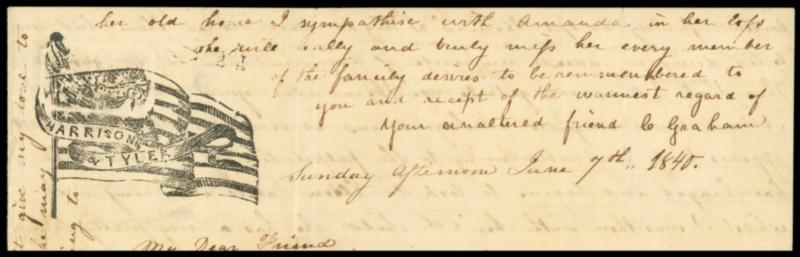 her old home I sympathise with Amanda in her loss
she will really and truly miss her every member
of the family desires to be remmembered to
you and recept of the warmest regard of
Your unaltered friend C Graham
Sunday Afternoon June 7th, 1840.
My Dear Friend
HARRISON
& TYLER
give my love to
he may
ing to